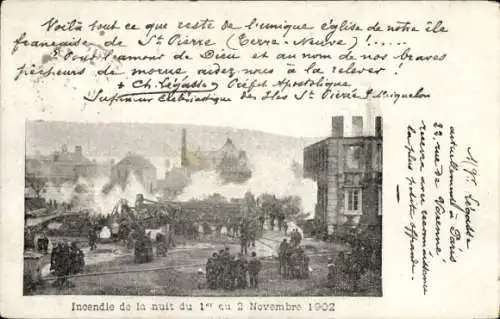 Voilà tout ce que reste de l'unique église de notre île
française de St. Pierre (Terre-Neuve)!.....
Pour l'amour de Dieu et au nom de nos braves
pêcheurs de morue aidez nous à la relever!
+ Ch. Légasse Préfet Apostolique
Supérieur Ecclésiastique des Iles St. Pierre & Miquelon
Mgr Légasse, actuellement à Paris
22 rue de Varenne, recevra avec reconnaissance
la plus petite offrande
Incendie de la nuit du 1er au 2 Novembre 1902